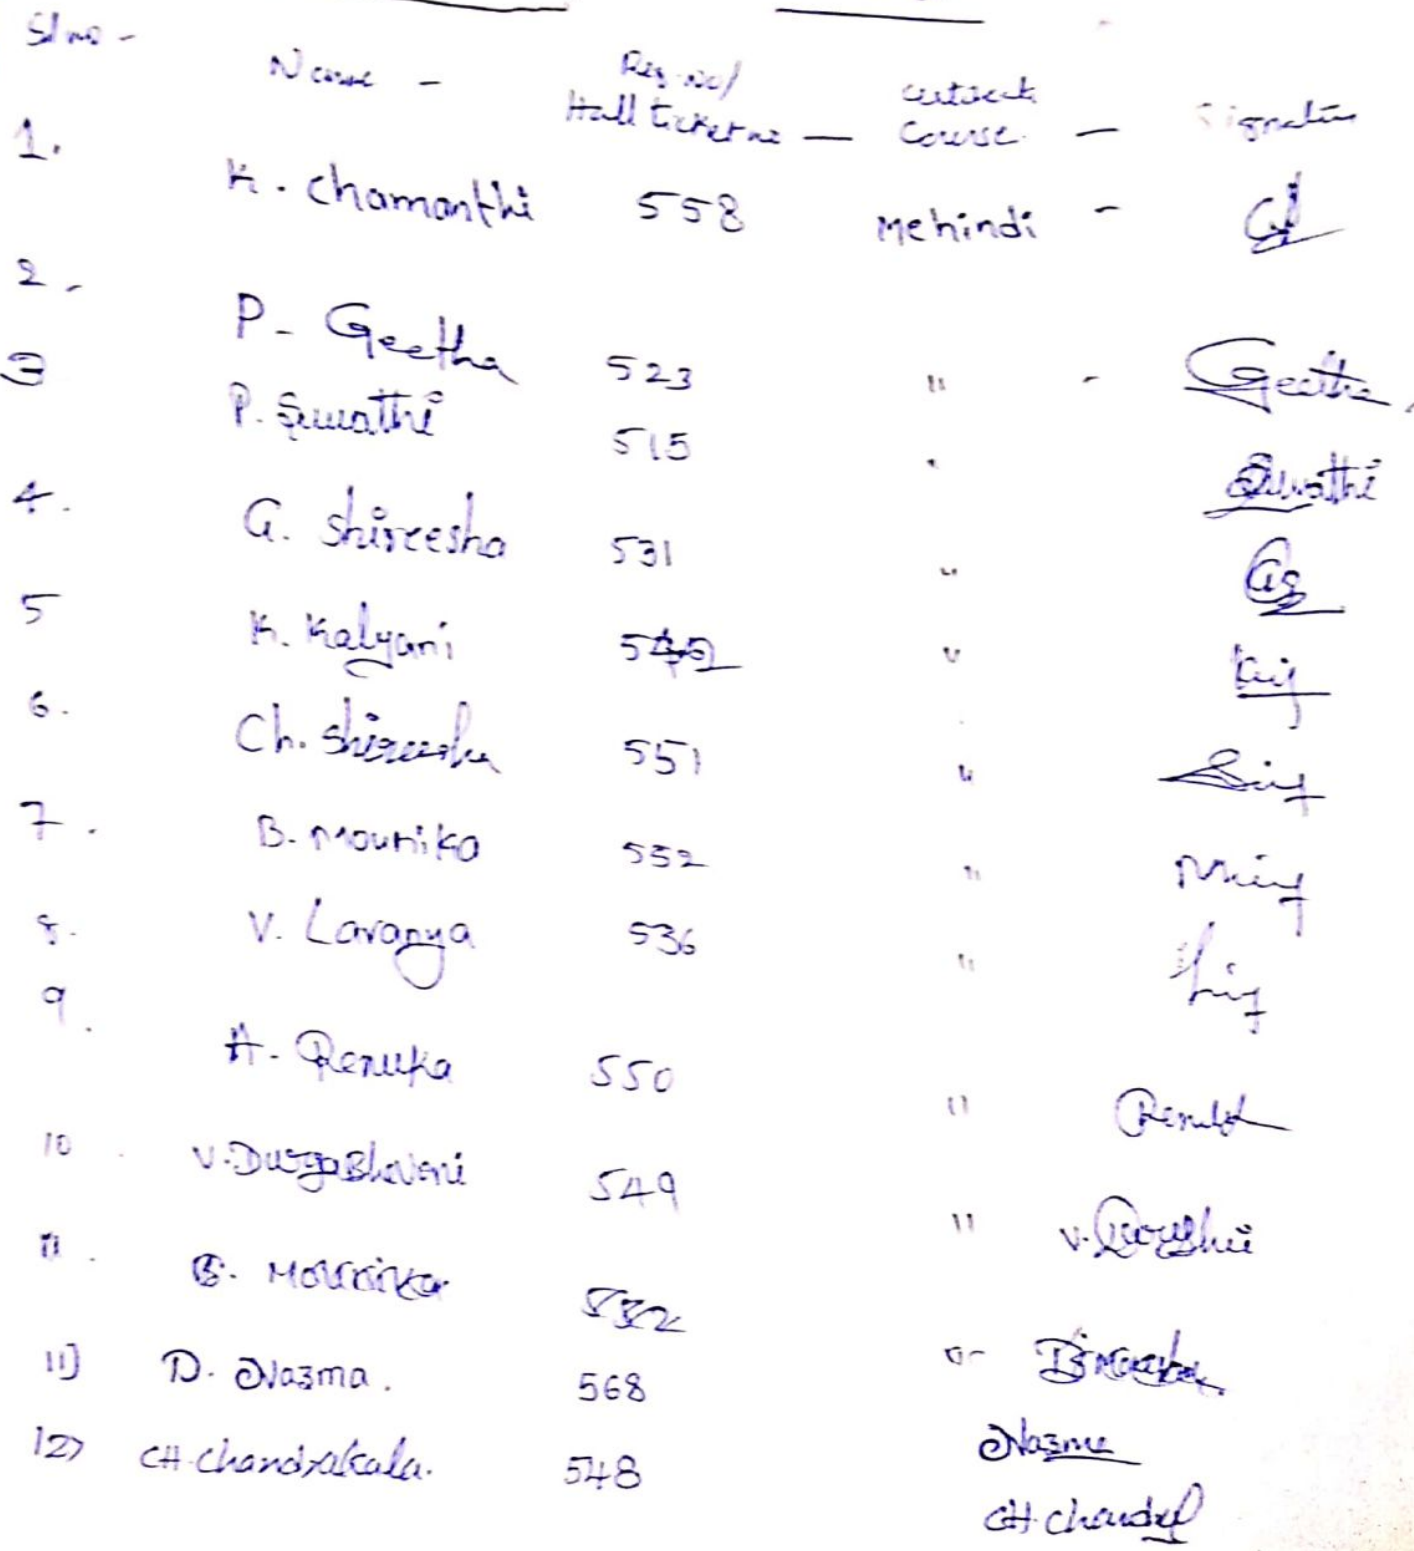 Sl no - Name - Reg. no/ Hall ticket no - Course - Signature
1. K. Chamanthi 558 Mehindi -
2. P - Geetha 523 " - Geetha
3 P. Swathi 515 " Swathi
4. G. Shireesha 531 "
5 K. Kalyani "
6. Ch. Shireesha 551 "
7. B. Mounika 552 "
8. V. Lavanya 536 "
9. A. Renuka 550 " Renuka
10 V. Durga Bhavani 549 "
11. B. Mounika 552
11) D. Nazma. 568 Nazma
12) CH. Chandrakala. 548 CH. Chandra